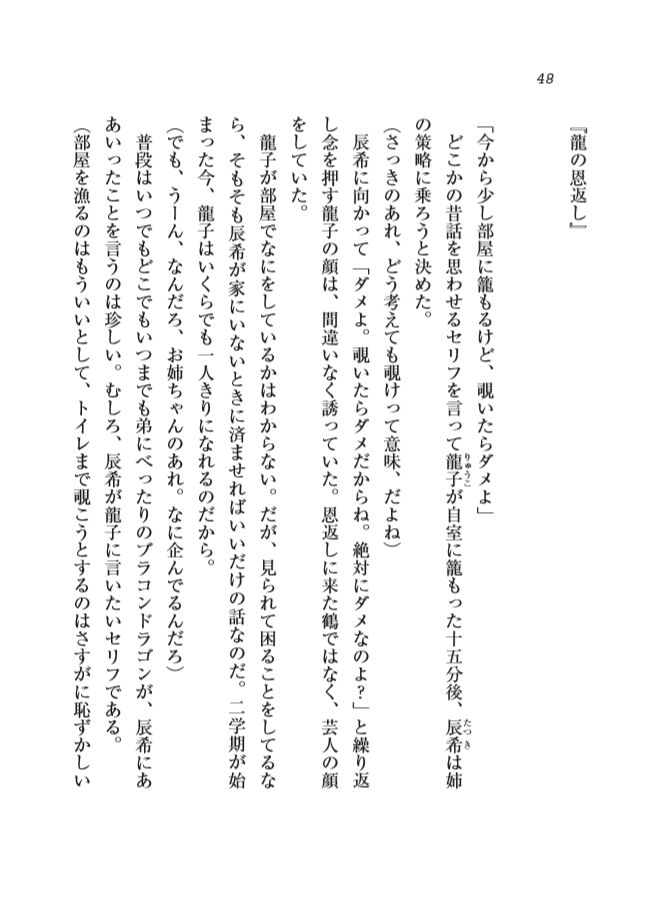 48
『龍の恩返し』
「今から少し部屋に籠もるけど、覗いたらダメよ」
　どこかの昔話を思わせるセリフを言って龍子(りゅうこ)が自室に籠もった十五分後、辰希(たつき)は姉
の策略に乗ろうと決めた。
（さっきのあれ、どう考えても覗けって意味、だよね）
　辰希に向かって「ダメよ。覗いたらダメだからね。絶対にダメなのよ？」と繰り返
し念を押す龍子の顔は、間違いなく誘っていた。恩返しに来た鶴ではなく、芸人の顔
をしていた。
　龍子が部屋でなにをしているかはわからない。だが、見られて困ることをしてるな
ら、そもそも辰希が家にいないときに済ませればいいだけの話なのだ。二学期が始
まった今、龍子はいくらでも一人きりになれるのだから。
（でも、うーん、なんだろ、お姉ちゃんのあれ。なに企んでるんだろ）
　普段はいつでもどこでもいつまでも弟にべったりのブラコンドラゴンが、辰希にあ
あいったことを言うのは珍しい。むしろ、辰希が龍子に言いたいセリフである。
（部屋を漁るのはもういいとして、トイレまで覗こうとするのはさすがに恥ずかしい